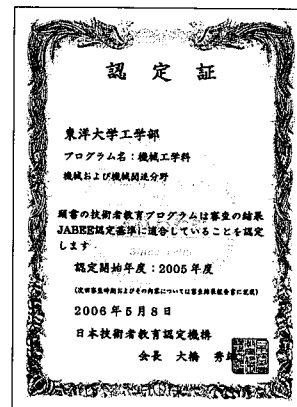 認定証
東洋大学工学部
プログラム名：機械工学科
機械および機械関連分野
頭書の技術者教育プログラムは審査の結果
JABEE認定基準に適合していることを認定
します
認定開始年度：2005年度
(次回審査時期およびその内容については審査結果報告書に記載)
2006年5月8日
日本技術者教育認定機構
会長 大橋 秀雄